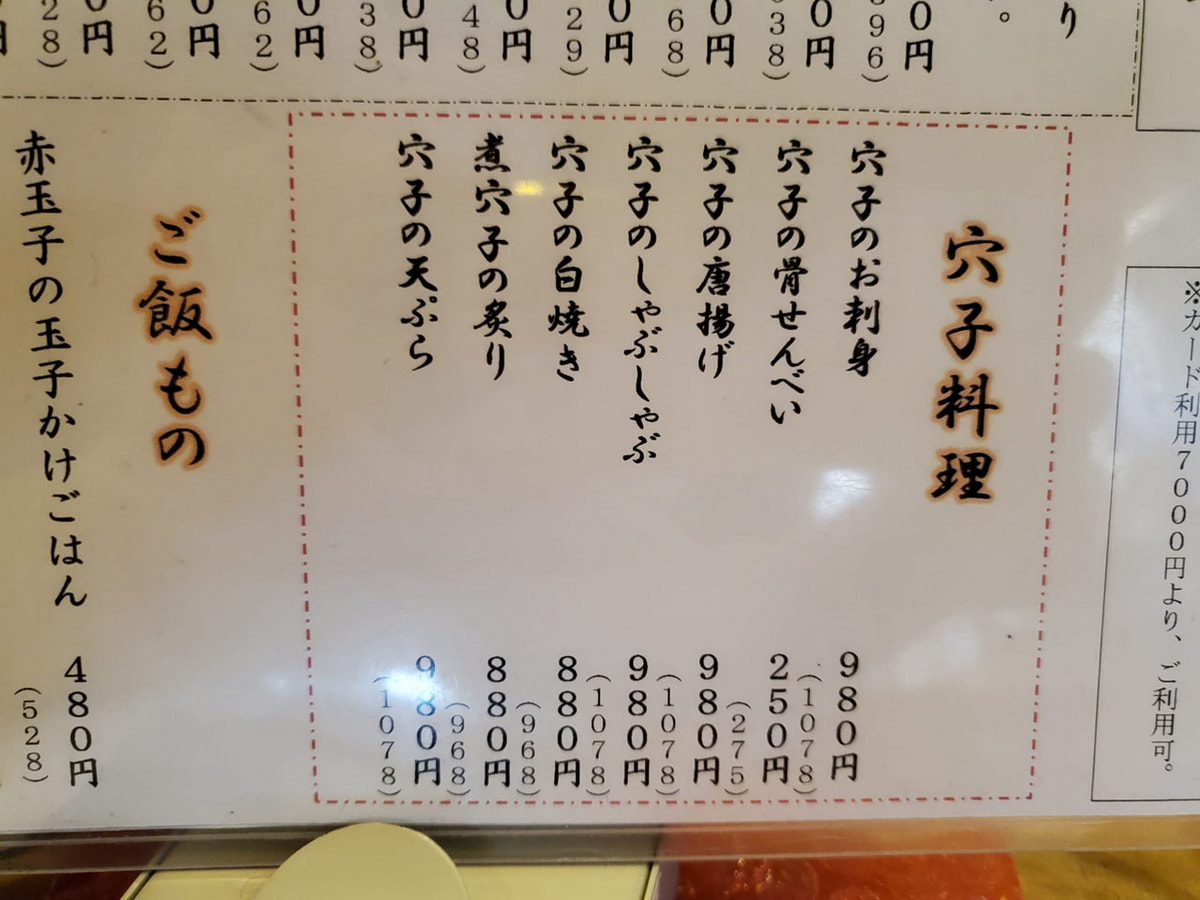 ※カード利用7000円より、ご利用可。
穴子料理
穴子のお刺身 980円
(1078)
穴子の骨せんべい 250円
(275)
穴子の唐揚げ 980円
(1078)
穴子のしゃぶしゃぶ 980円
(1078)
穴子の白焼き 880円
(968)
煮穴子の炙り 880円
(968)
穴子の天ぷら 980円
(1078)
ご飯もの
赤玉子の玉子かけごはん 480円
(528)